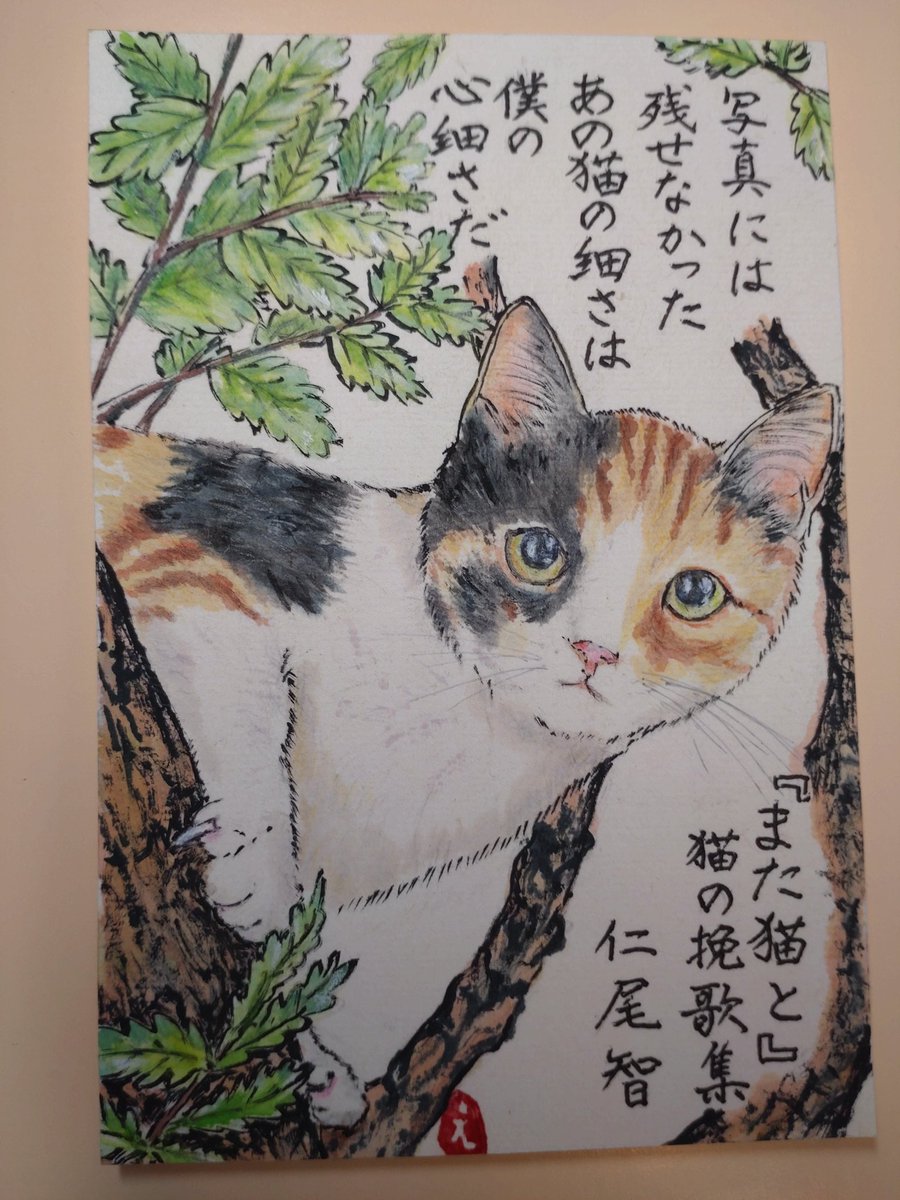 写真には
残せなかった
あの猫の細さは
僕の
心細さだ
『また猫と』
猫の挽歌集
仁尾智